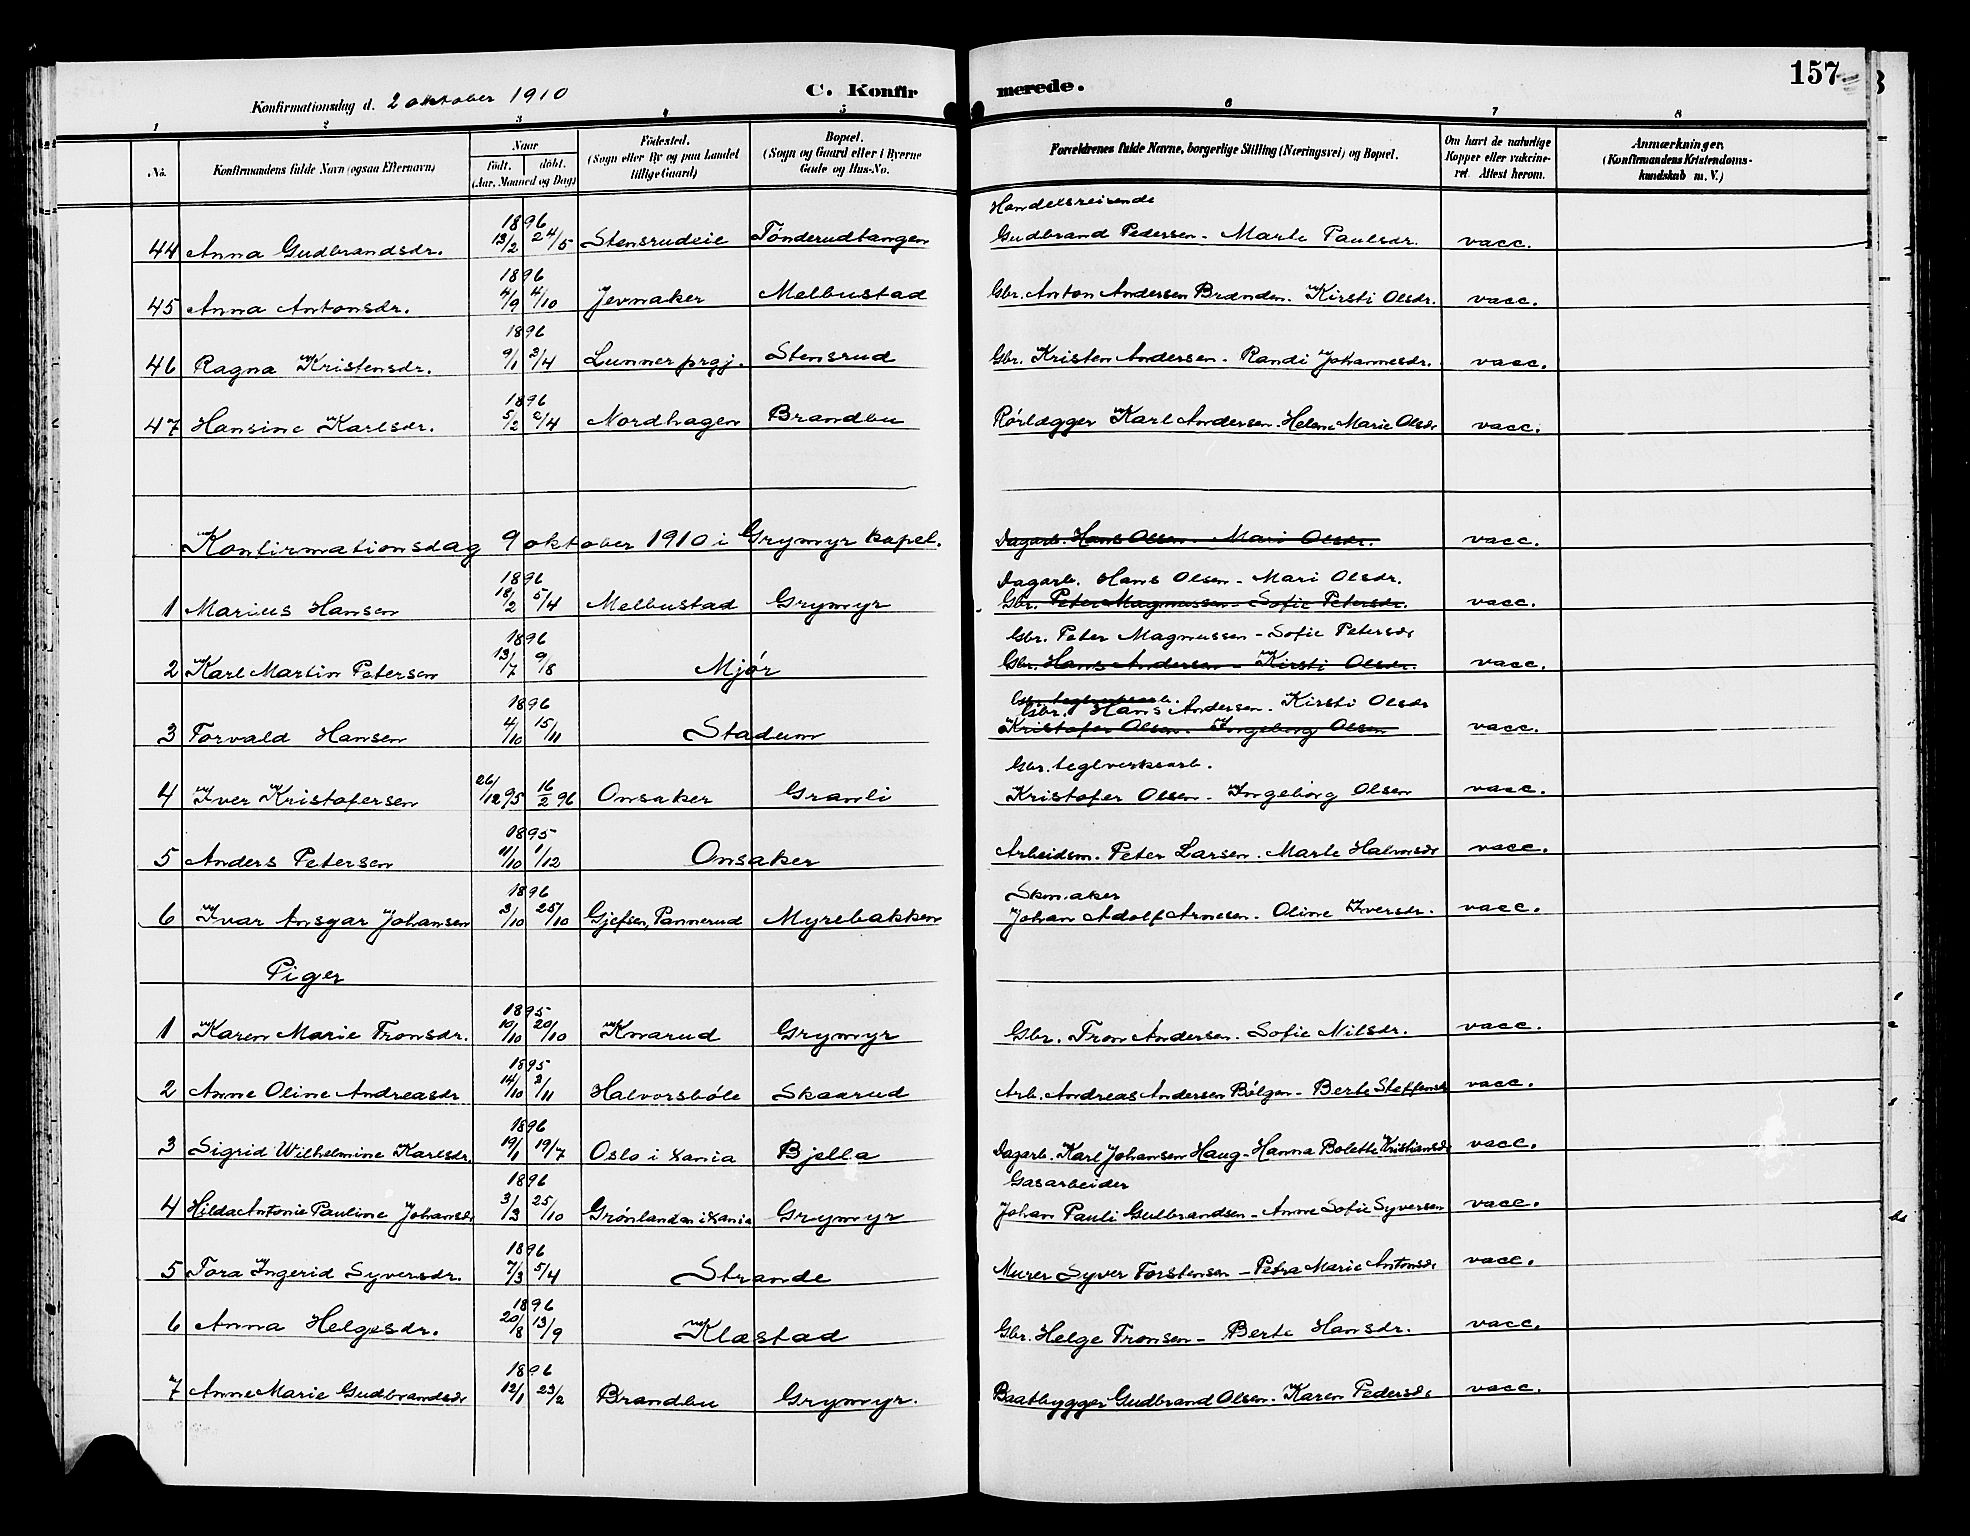 157
Konfirmationsdag d. 2 oktober 1910 C. Konfirmerede.
1 2 3 4 5 6 7 8
No. Konfirmandens fulde Navn (ogsaa Efternavn) Naar Født. døbt. (Aar, Maaned og Dag) Fødested. (Sogn eller By og paa Landet tillige Gaard) Bopæl. (Sogn og Gaard eller i Byerne Gade og Hus-No. Forældrenes fulde Navne, borgerlige Stilling (Næringsvei) og Bopæl. Om havt de naturlige Kopper eller vakcineret. Attest herom. Anmærkninger. (Konfirmandens Kristendomskundskab m. V.)
1896 Handelsreisende
44 Anna Gudbrandsdr. 13/2 24/5 Stensrudeie Tønderudtangen Gudbrand Pedersen - Marte Paulsdr. vacc.
1896
45 Anna Antonsdr. 4/9 4/10 Jevnaker Melbustad Gbr. Anton Andersen Brænden. Kirsti Olsdr. vacc.
1896
46 Ragna Kristensdr. 9/1 3/4 Lunner prgj. Stensrud Gbr. Kristen Andersen - Randi Johannesdr. vacc.
1896
47 Hansine Karlsdr. 5/2 2/4 Nordhagen Brandbu Rørlægger Karl Andersen. Helene Marie Olsdr vacc.
Konfirmationsdag 9 oktober 1910 i Grymyr kapel. Dagarb. Hans Olsen - Mari Olsdr. vacc.
1896 Dagarb. Hans Olsen - Mari Olsdr.
1 Marius Hansen 18/2 5/4 Melbustad Grymyr Gbr. Peter Magnussen - Sofie Petersdr. vacc.
1896 Gbr. Peter Magnussen - Sofie Petersdr
2 Karl Martin Petersen 13/7 9/8 Mjør Gbr. Hans Andersen - Kirsti Olsdr. vacc.
1896 Gbr. teglverksarb.
Gbr. Hans Andersen. Kirsti Olsdr
3 Torvald Hansen 4/10 15/11 Stadum Kristofer Olsen. Ingeborg Olsen vacc.
Gbr. teglverksarb.
4 Iver Kristofersen 26/12 95 16/2 96 Onsaker Granli Kristofer Olsen - Ingeborg Olsen vacc.
1895
5 Anders Petersen 11/10 1/12 Onsaker Arbeidsm. Peter Larsen. Marte Halvorsdr vacc.
1896 Skomaker
6 Ivar Ansgar Johansen 3/10 25/10 Gjefsen, Pannerud Myrebakken Johan Adolf Arnesen - Oline Iversdr. vacc.
Piger
1895
1 Karen Marie Tronsdr. 10/10 20/10 Knarud Grymyr Gbr. Tron Andersen. Sofie Nilsdr. vacc.
1895
2 Anne Oline Andreasdr 14/10 2/11 Halvorsbøle Skaarud Arb. Andreas Andersen Bølgen - Berte Steffensdr vacc.
1896
3 Sigrid Wilhelmine Karlsdr. 19/1 19/7 Oslo i Xania Bjella Dagarb. Karl Johansen Haug - Hanna Bolette Kristiansdr vacc.
1896 Gasarbeider
4 Hilda Antonie Pauline Johansdr 3/3 25/10 Grønland i Xania Grymyr Johan Pauli Gulbrandsen - Anne Sofie Syversen vacc.
1896
5 Tora Ingerid Syversdr. 7/3 5/4 Strande Murer Syver Torstensen - Petra Marie Antonsdr vacc.
1896
6 Anna Helgesdr. 20/8 13/9 Klæstad Gbr. Helge Tronsen - Berte Hansdr. vacc.
1896
7 Anne Marie Gudbrandsdr 12/1 23/2 Brandbu Grymyr. Baatbygger Gudbrand Olsen. Karen Pedersdr vacc.